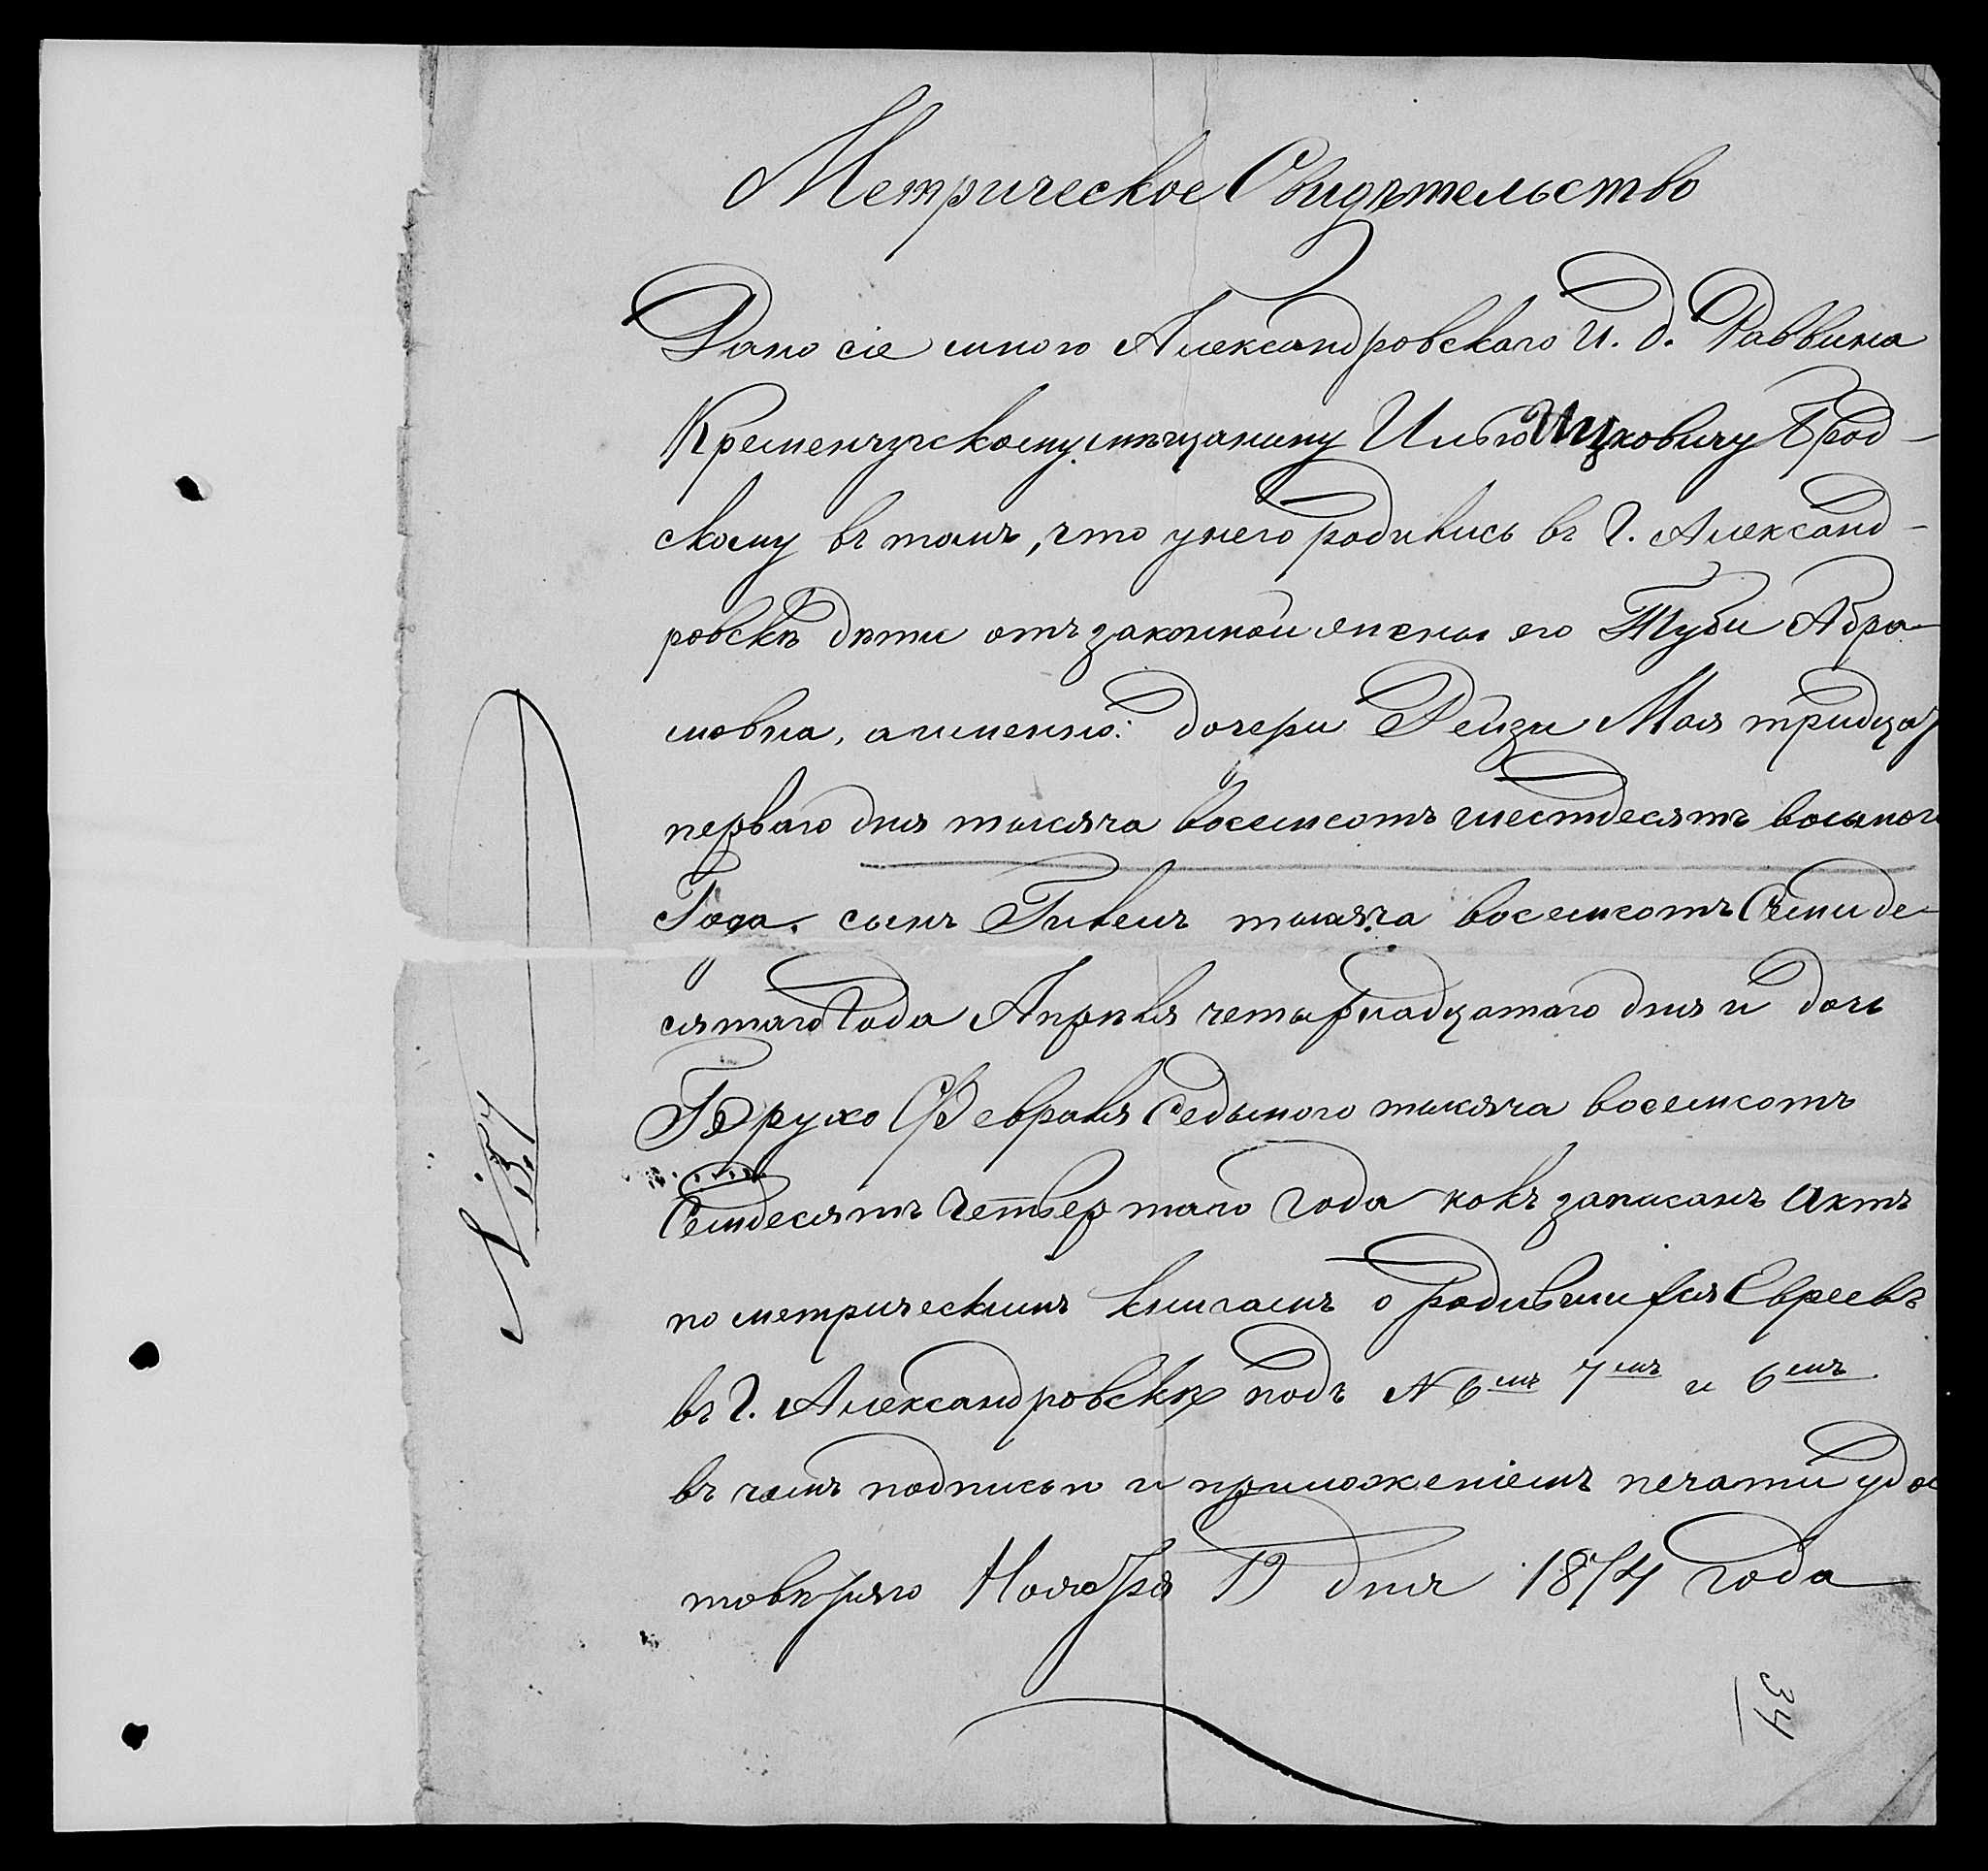 Метрическое Свидѣтельство
Дано сіе мною Александровскаго И. д. Раввина
Кременчугскому мѣщанину Илью Ицковичу Брод-
скому въ томъ, что унего родились въ г. Александ-
ровскѣ дѣти отъ законной жены его Тубы Абра-
мовна, аименно: дочери Рейзи Мая тридцать
перваго дня тысяча восемсотъ шестдесятъ восьмого
Года. сынъ Гилель тысяча восемсотъ Семиде-
сятаго Года Апрѣля четырнадцатаго дня и дочь
Бруха Февраля Седьмого тысяча восемсотъ
Семдесятъ Четвертаго Года какъ записанъ актъ
по метрическимъ книгамъ о родившихся Евреевъ
въ г. Александровскѣ подъ № 6мъ 7мъ и 6мъ
въ чемъ подписью и приложеніемъ печати удос
товѣряю Ноября 19 дня 1874 года
№ 37
34